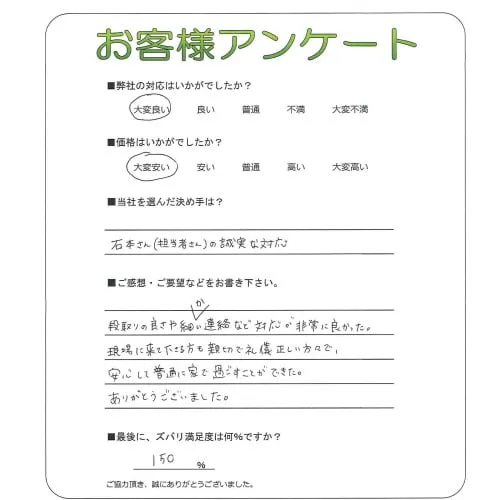 お客様アンケート
■弊社の対応はいかがでしたか？
大変良い 良い 普通 不満 大変不満
■価格はいかがでしたか？
大変安い 安い 普通 高い 大変高い
■当社を選んだ決め手は？
石本さん(担当者さん)の誠実な対応
■ご感想・ご要望などをお書き下さい。
段取りの良さや細かい連絡など対応が非常に良かった。
現場に来て下さる方も親切で礼儀正しい方々で、
安心して普通に家で過ごすことができた。
ありがとうございました。
■最後に、ズバリ満足度は何%ですか？
150 %
ご協力頂き、誠にありがとうございました。